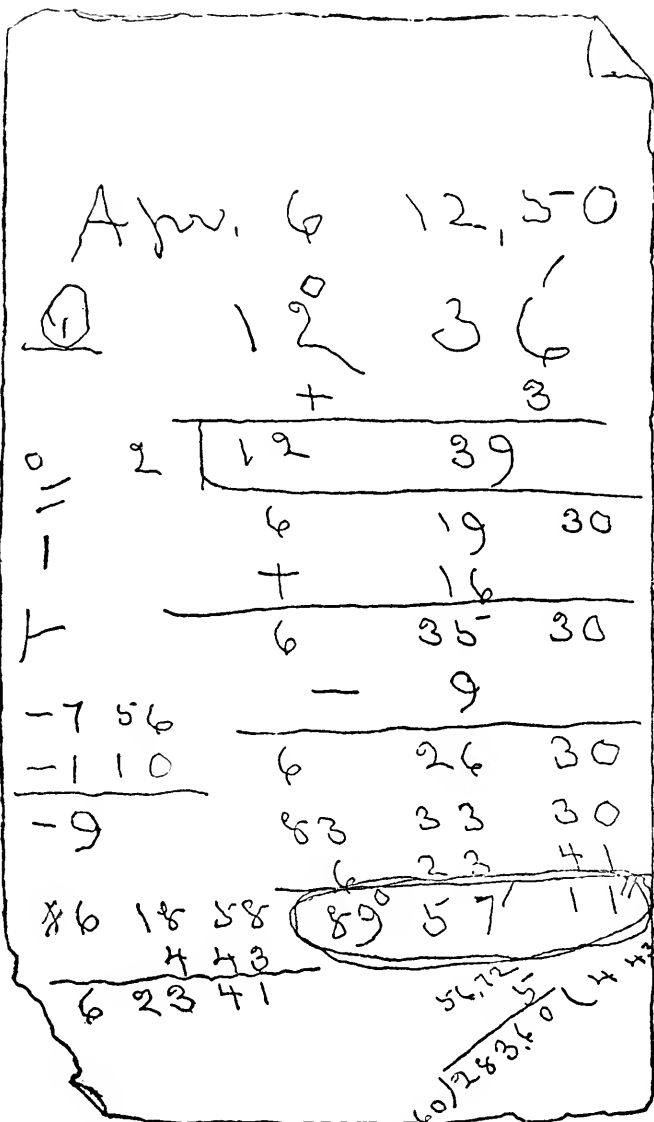 Apr. 6 12,50
1 12° 36'
+ 3
2 12 39
6 19 30
+ 16
6 35 30
- 9
-7 56
-1 10
6 26 30
-9
83 33 30
6 23 41
*6 18 58
89° 57' 11"
4 43
6 23 41
56,72
5
60)283.60(4 43